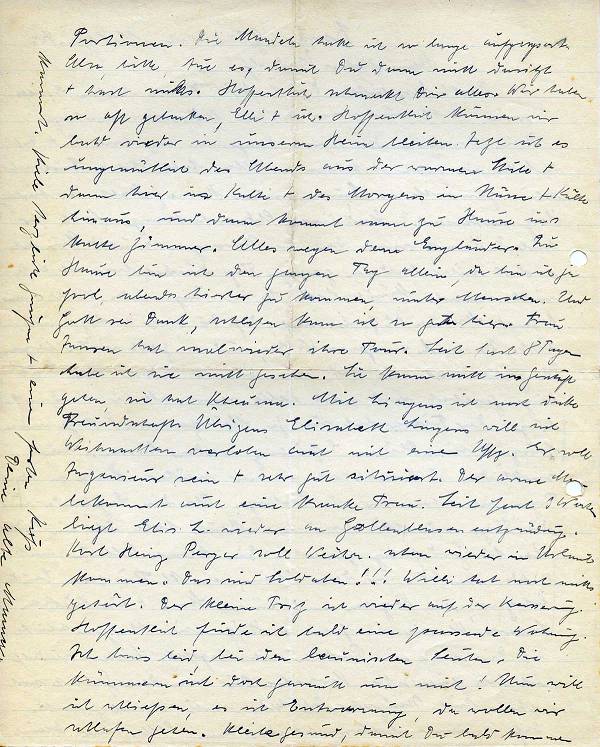 Portionen. Die Mandeln hatte ich so lange aufgespart.
Also, bitte, tue es, damit Du dann nicht dasitzt
+ hast nichts. Hoffentlich schmeckt Dir alles. Wir haben
so oft gedacken, Elli + ich. Hoffentlich können wir
bald wieder in unserem Heim bleiben. Jetzt ist es
ungemütlich des Abends aus der warmen Stube +
dann hier ins Kalte + des Morgens in Nässe + Kälte
hinaus, und dann kommt man zu Hause ins
kalte Zimmer. Alles wegen dem Engländer. Zu
Hause bin ich den ganzen Tag allein, da bin ich ja
froh, abends hierher zu kommen unter Menschen. Und
Gott sei Dank, schlafen kann ich so gut hier. Frau
Jansen hat mal wieder ihre Tour. Seit fast 8 Tagen
habe ich sie nicht gesehen. Sie kann nicht ins Geschäft
gehen, sie hat Rheuma. Mit Lingens ist noch dicke
Freundschaft. Übrigens Elisabeth Lingens will sich
Weihnachten verloben auch mit eine Uffz. Er soll
Ingenieur sein + sehr gut situiert. Der arme
bekommt auch eine kranke Frau. Seit fast 3 Wochen
liegt Elis. L. wieder an Gallenblasenentzündung.
Karl Heinz soll Weihn. schon wieder in Urlaub
kommen. Das sind Soldaten!!! Willi hat noch nichts
gehört. Der kleine Fritz ist wieder auf der Kaserne.
Hoffentlich finde ich bald eine passende Wohnung.
Ich bins leid, bei den Leuten. Die
kümmern sich doch garnicht um mich! Nun will
ich schließen, es ist Entwarnung, da wollen wir
schlafen gehen. Bleib gesund, damit Du bald kommen
kannst. Viele herzliche Grüße + einen frohen Kuß
Deine alte Mamma.